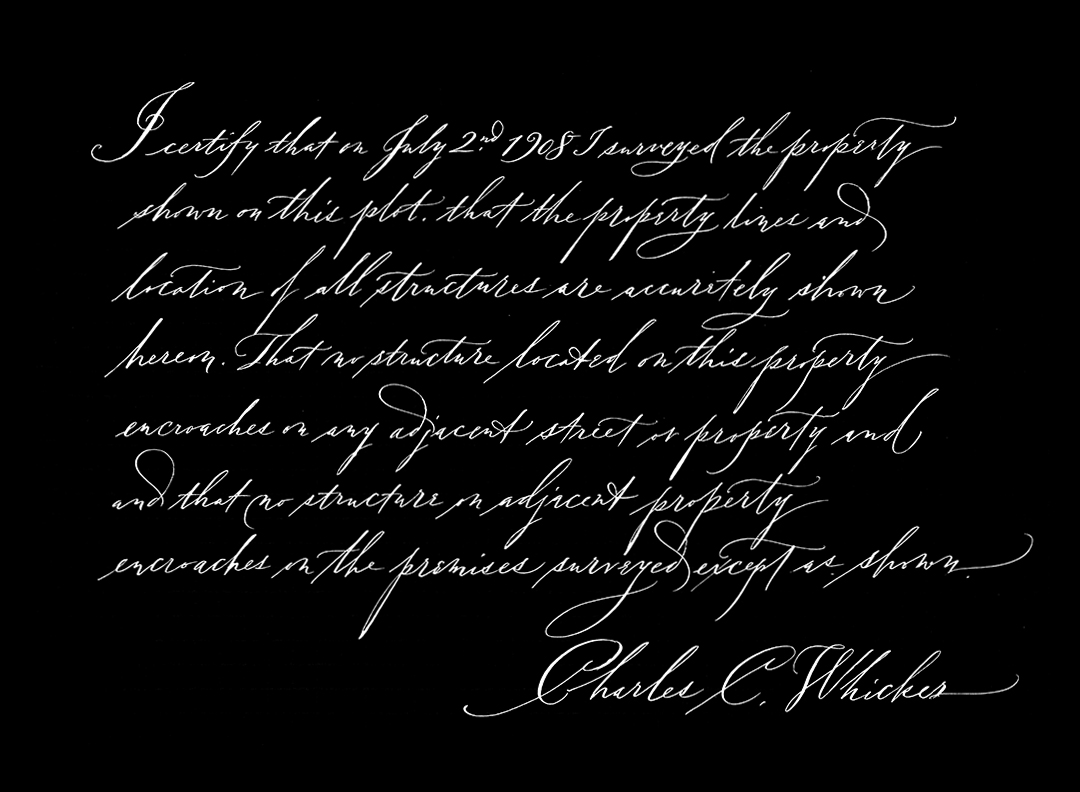 I certify that on July 2nd 1908 I surveyed the property
shown on this plot. that the property lines and
location of all structures are accuritely shown
hereon. That no structure located on this property
encroaches on any adjacent street or property and
and that no structure on adjacent property
encroaches on the premises surveyed except as shown.
Charles C. Whicker